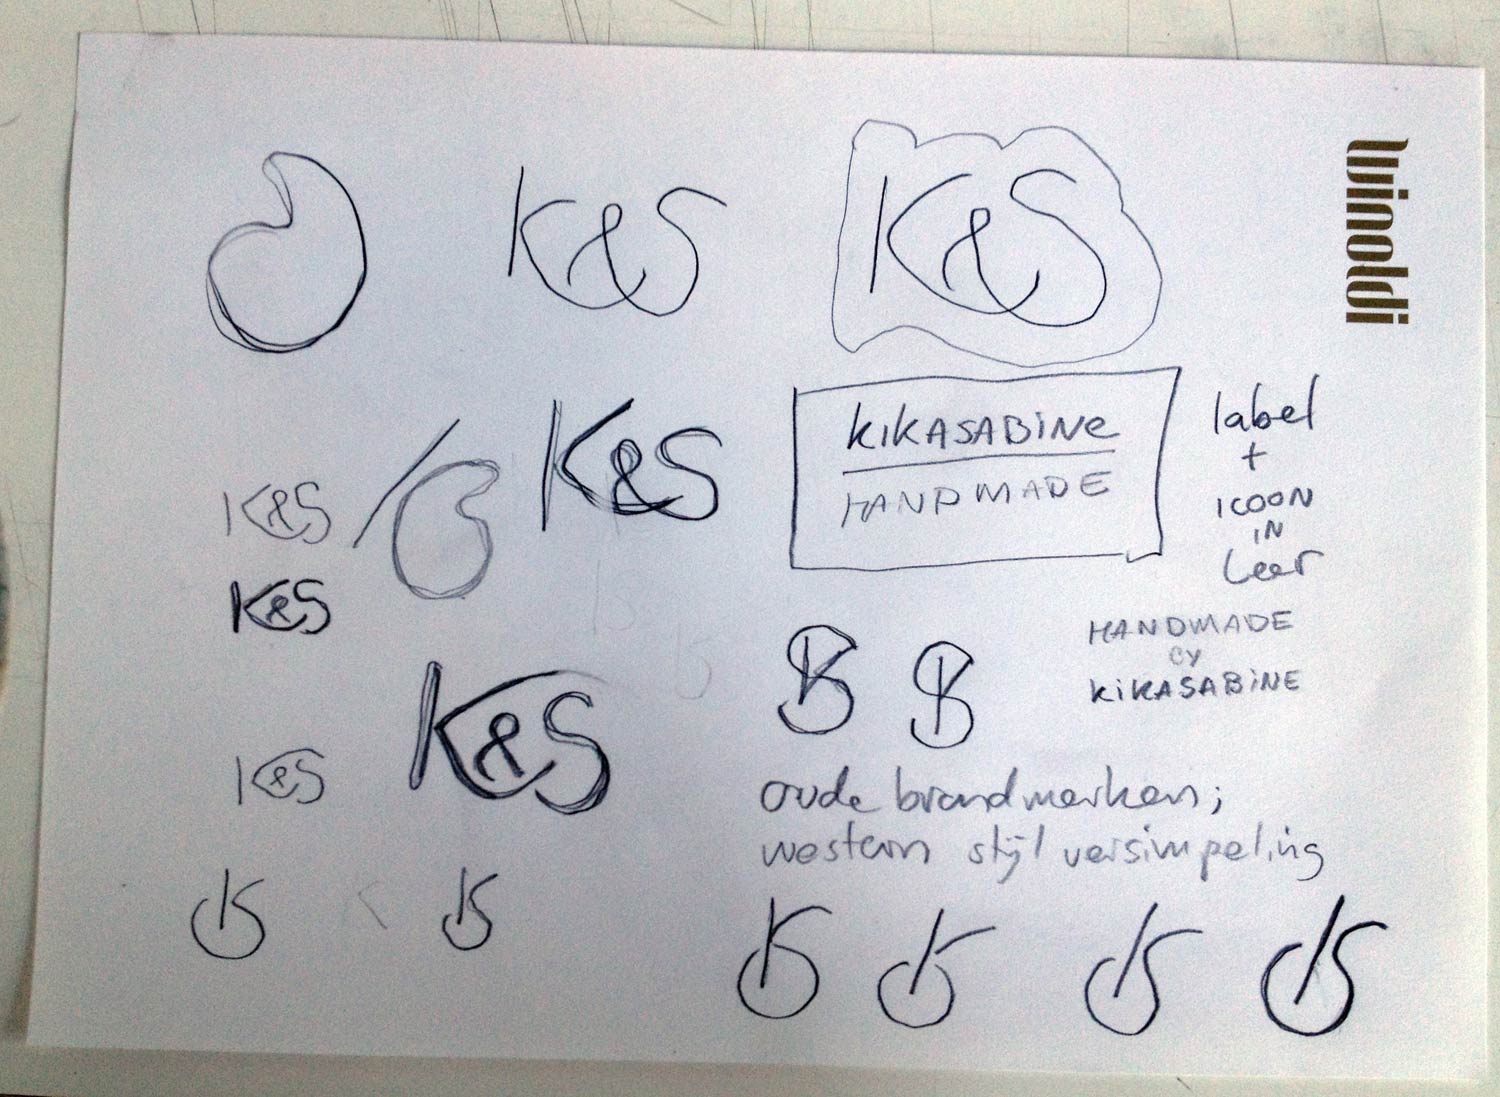 K&S
K&S
wimoldi
KiKASABiNe
HANDMADE
label
+
ICOON
IN
Leer
K&S
K&S
K&S
HANDMADE
BY
KiKASABiNE
K&S
K&S
oude brandmerken;
western stijl versimpeling